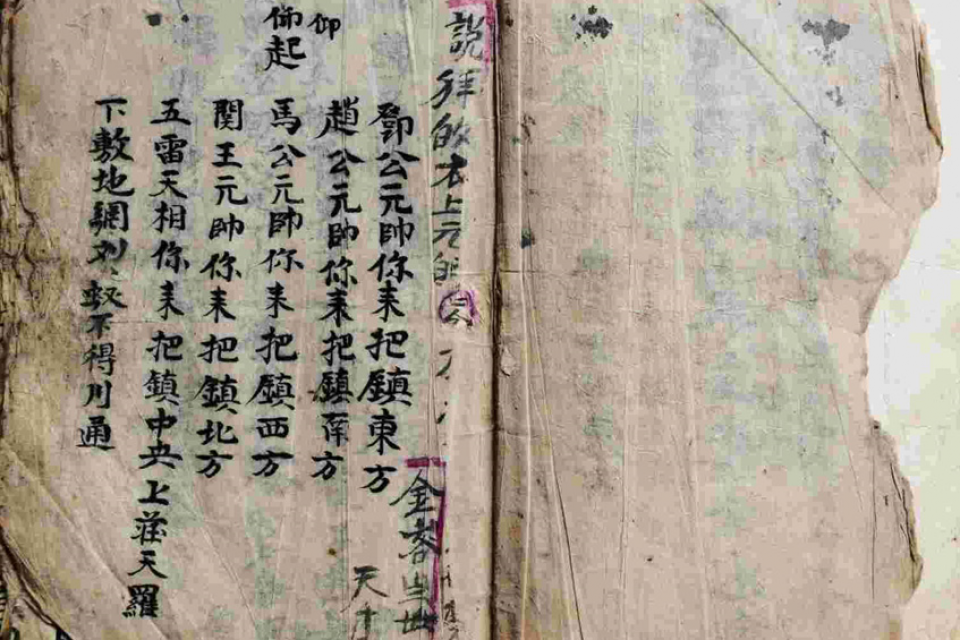 説拜
上元
金
天
仰
仰起
鄧公元帥你来把鎮東方
趙公元帥你来把鎮南方
馬公元帥你来把鎮西方
関王元帥你来把鎮北方
五雷天相你来把鎮中央上莊天羅
下敷地網刘 不得川通